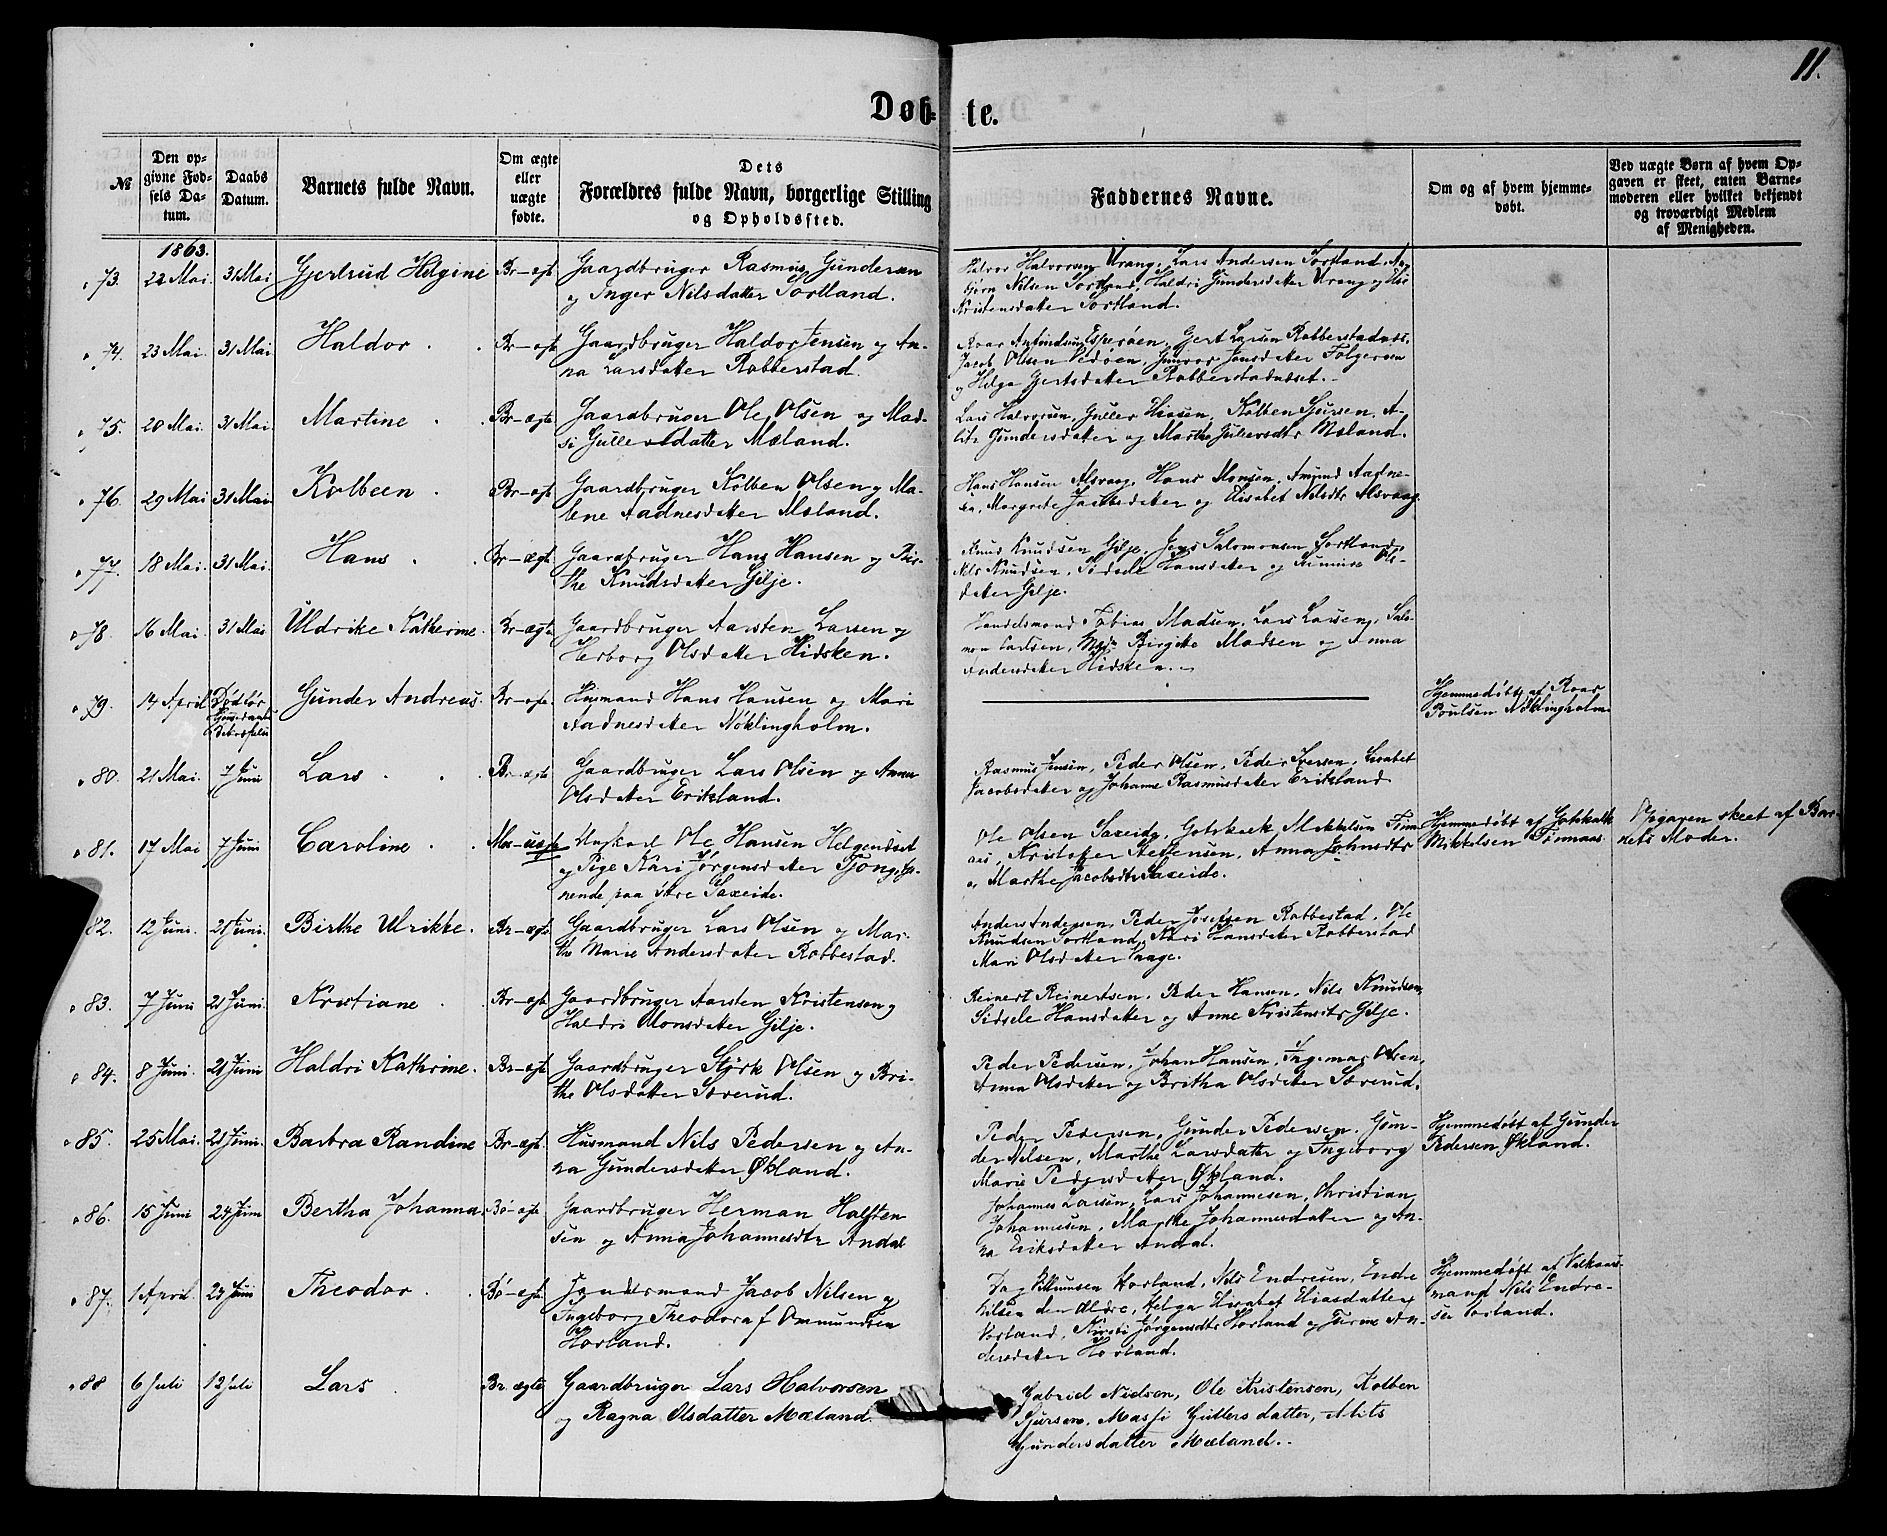 11.
Døb= te.
№
Den opgivne Fødsels Datum.
Daabs Datum.
Barnets fulde Navn.
Om ægte eller uægte fødte.
Dets Forældres fulde Navn, borgerlige Stilling og Opholdssted.
Faddernes Navne.
Om og af hvem hjemmedøbt.
Ved uægte Børn af hvem Opgaven er skeet, enten Barnemoderen eller hvilket bekjendt og troværdigt Medlem af Menigheden.
1863.
73. 22 Mai. 31 Mai Gjertrud Helgine Br-egt Gaardbruger Rasmus Gundersen
og Inger Nilsdatter Sortland.
Halvor Halvorsen Vrang, Lars Andersen Sortland,
Nilsen Sortland, Haldri Gundersdatter Vrang og
Kristensdatter Sortland.
74. 23 Mai. 31 Mai Haldor Br-egt Gaardbruger Haldor Jensen og An-
na Larsdatter Robberstad
Roar Gert Larsen Robberstadnæs,
Jacob Olsen Gunvor Jonsdatter
og Helga Gertsdatter Robberstadnæset.
75. 20 Mai. 31 Mai Martine Br-ægte Gaardbruger Ole Olsen og Mad-
si Gulleivsdatter Mæland.
Lars Halvorsen, Kolben Sjursen, A-
lits Gundersdatter og Marthe Mæland.
76. 29 Mai 31 Mai Kolbeen Br-egt Gaardbruger Kolben Olsen og Ma-
lene Aadnesdatter Mæland.
Hans Hansen Alsvaag, Hans Monsen, Amund Aadne-
sen, Margrete Jacobsdatter og Elisabet Nilsdtr Alsvaag
77. 18 Mai. 31 Mai. Hans Br-ægt Gaardbruger Hans Hansen og Bir-
the Knudsdatter Gilje.
Knud Knudsen Gilje, Jens Salomonsen Sortland,
Nils Knudsen, Sidsele Hansdatter og Ols-
datter Gilje.
78 16 Mai. 31 Mai Uldrike Katherine. Br-ægte Gaardbruger Aarsten Larsen og
Herborg Olsdatter Hidsken.
Handelsmand Tobias Madsen, Lars Larsen, Salo-
mon Carlsen, Birgitte Madsen og Anna
Andersdatter Hidsken.
79. 14 April Gunder Andreas. Br-egte. Husmand Hans Hansen og Mari
Aadnesdatter Nøklingholm.
Hjemmedøbt af Roar
Poulsen Nøklingholm
80. 21 Mai. 7 Juni Lars Br-ægte Gaardbruger Lars Olsen og Anna
Olsdatter Eriksland.
Rasmus Jensen, Peder Olsen, Peder Iversen, Lisabet
Jacobsdatter og Johanne Rasmusdatter Eriksland
81. 17 Mai 7 Juni Caroline Ungkarl Ole Hansen Helgendsæt
og Pige Kari Jørgensdatter Tjong, tje-
nende paa Øvre Saxeide.
Ole Olsen Saxeide, Gotskalk Mikkelsen Fin-
naas, Kristoffer Anna Johnsdtr
og Marthe Jacobsdtr Saxeide.
Hjemmedøbt af Gotskalk
Mikkelsen Finnaas.
Opgaven skeet af Bar-
nets Moder.
82. 12 Juni. 21 Juni. Birthe Ulrikke. Br-ægt Gaardbruger Lars Olsen og Mar-
the Marie Andersdatter Robbestad.
Anders Andersen, Peder Josefsen Robbestad, Ole
Knudsen Sortland, Kari Hansdatter Robberstad
Mari Olsdatter Vaage.
83. 7 Juni 21 Juni. Kristiane Br-egt Gaardbruger Aarsten Kristensen og
Haldri Monsdatter Gilje.
Reinert Reinertsen, Peder Hansen, Nils Knudsen,
Sidsele Hansdatter og Anne Kristensdtr Gilje.
84. 8 Juni. 21 Juni Haldri Kathrine. Br-egt Gaardbruger Størk Olsen og Bri-
the Olsdatter Sæverud.
Peder Pedersen, Johan Hansen, Ingemar Olsen,
Anna Olsdatter og Britha Olsdatter Sæverud.
85. 25 Mai. 21 Juni. Barbra Randine Br-egt. Husmand Nils Pedersen og An-
na Gundersdatter Økland.
Peder Pedersen, Gunder Pedersen, Gun-
der Nilsen, Marthe Larsdatter og Ingeborg
Marie Pedersdatter Økland.
Hjemmedøbt af Gunder
Pedersen Økland.
86. 15 Juni 24 Juni Bertha Johanna. Bø-egte Gaardbruger Herman Halsten-
sen og Anna Johannesdtr Andal
Johannes Larsen, Lars Johannesen, Christian
Johannesen, Marthe Johannesdatter og An-
na Eriksdatter Andal.
87. 1 April. Juni Theodor Bø-egt. Jacob Nilsen og
Ingeborg Theodora f Ommundsen
Horland.
Dag Horland, Nils Endresen, Endre
Nilsen den Ældre, Helga Elisabet Eliasdatter
Vorland, Kirsti Jørgensdtr Horland og An-
dersdatter Horland.
Hjemmedøbt af
mand Nils Endre-
sen Vorland.
88 6 Juli 12 Juli Lars Br ægte Gaardbruger Lars Halvorsen
og Ragna Olsdatter Mæland.
Gabriel Nielsen, Ole Kristensen, Kolben
Sjursen, Massi Gullersdatter, Alits
Gundersdatter Mæland.